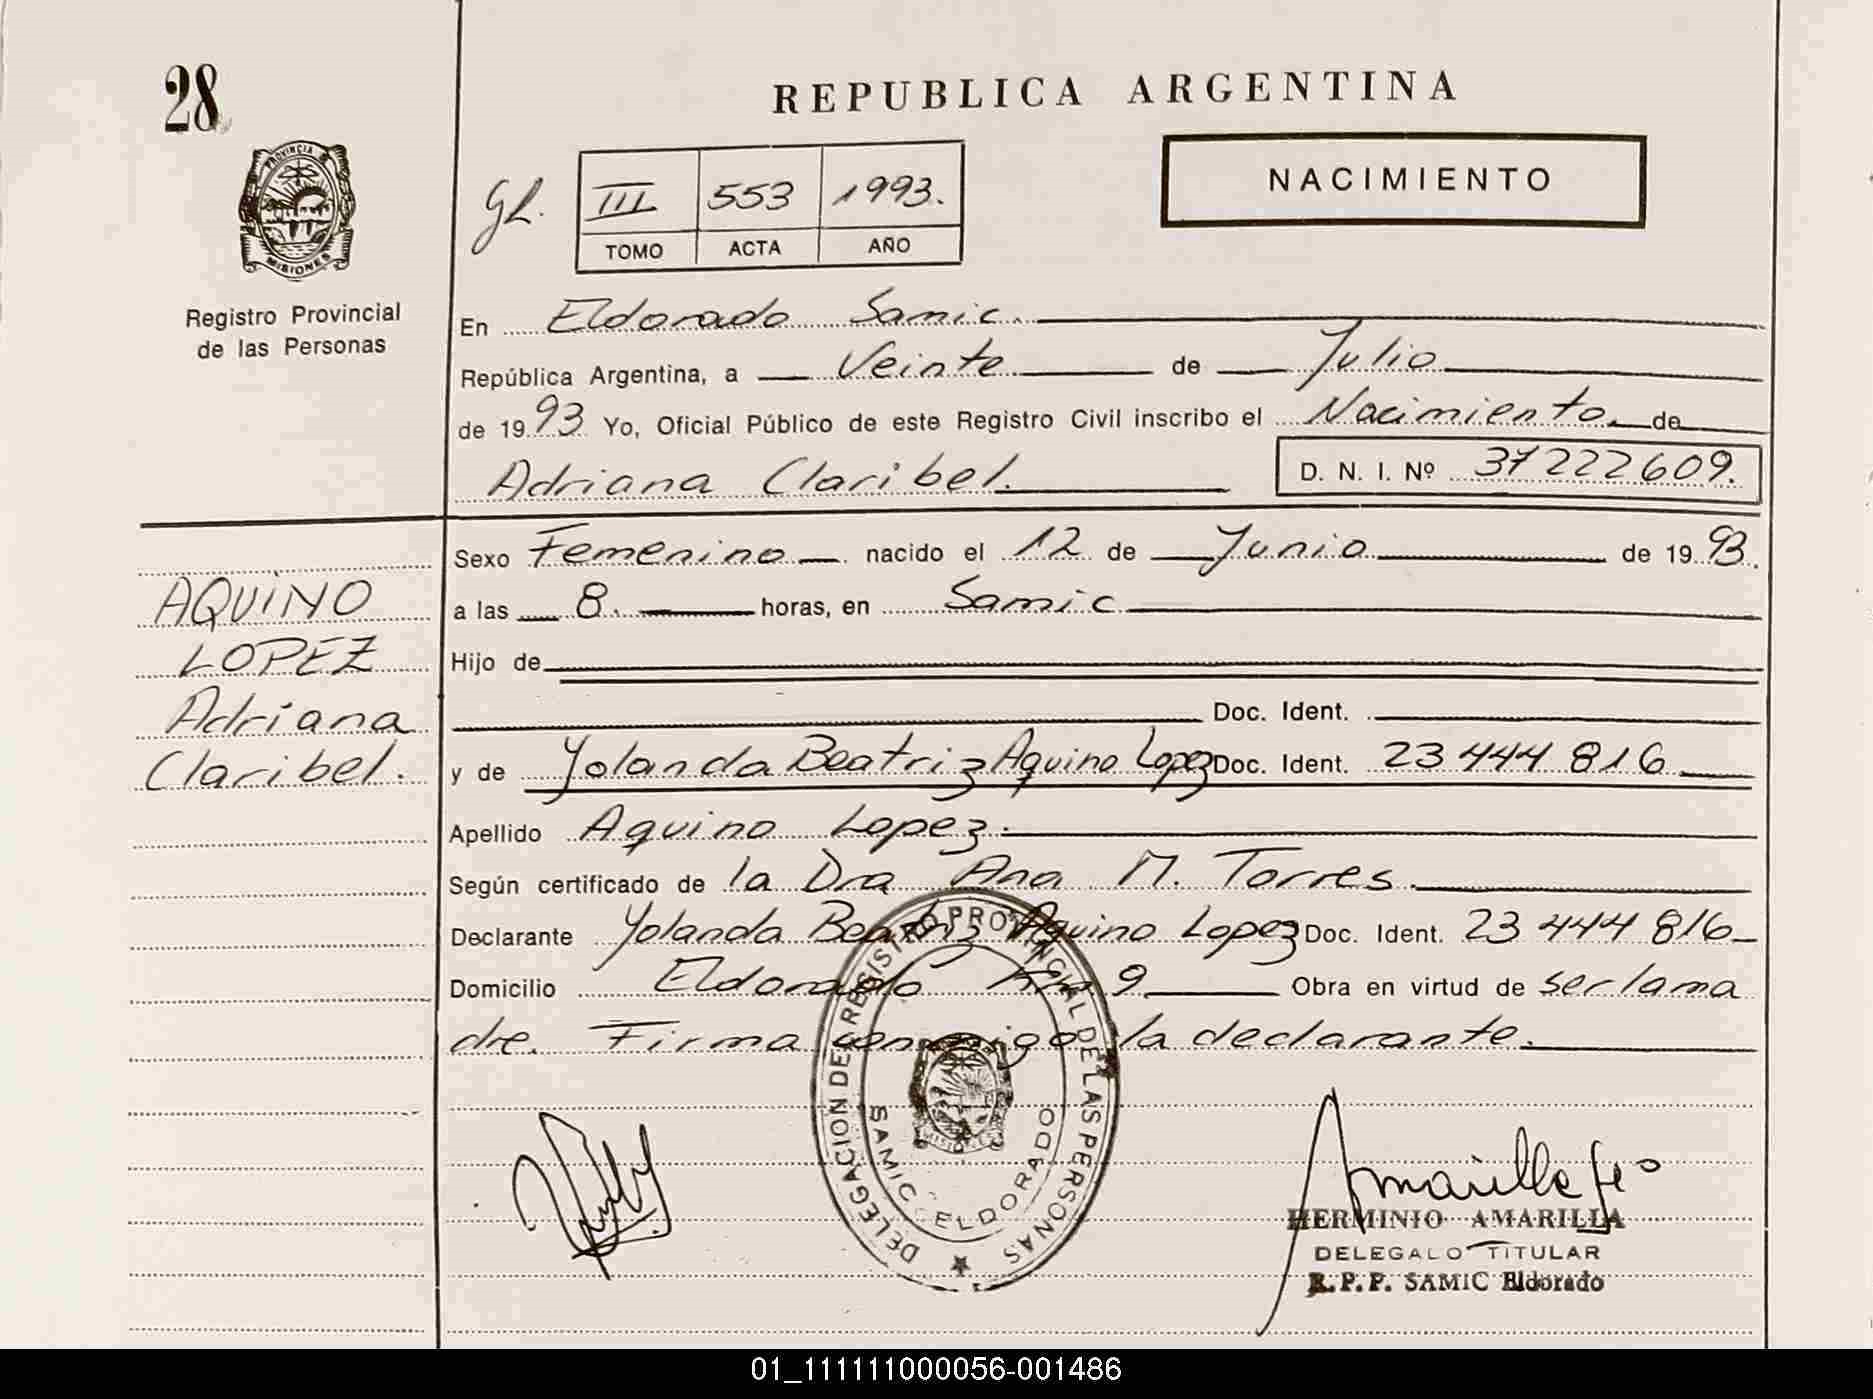 28
REPUBLICA ARGENTINA
PROVINCIA
MISIONES
Registro Provincial
de las Personas
III 553 1993.
TOMO ACTA AÑO
NACIMIENTO
En Eldorado Samic.
República Argentina, a Veinte de Julio
de 1993 Yo, Oficial Público de este Registro Civil inscribo el Nacimiento de
Adriana Claribel. D. N. I. Nº 37222609.
AQUINO
LOPEZ
Adriana
Claribel.
Sexo Femenino nacido el 12 de Junio de 1993.
a las 8. horas, en Samic
Hijo de
Doc. Ident.
y de Yolanda Beatriz Aquino Lopez Doc. Ident. 23 444 816
Apellido Aquino Lopez.
Según certificado de la Dra Ana M. Torres.
Declarante Yolanda Beatriz Aquino Lopez Doc. Ident. 23 444 816
Domicilio Eldorado Km 9 Obra en virtud de ser la ma
dre. Firma conmigo la declarante.
DELEGACION DE REGISTRO PROVINCIAL DE LAS PERSONAS
SAMIC ELDORADO
MISIONES
Amarilla
HERMINIO AMARILLA
DELEGADO TITULAR
R.P.P. SAMIC Eldorado
01_111111000056-001486